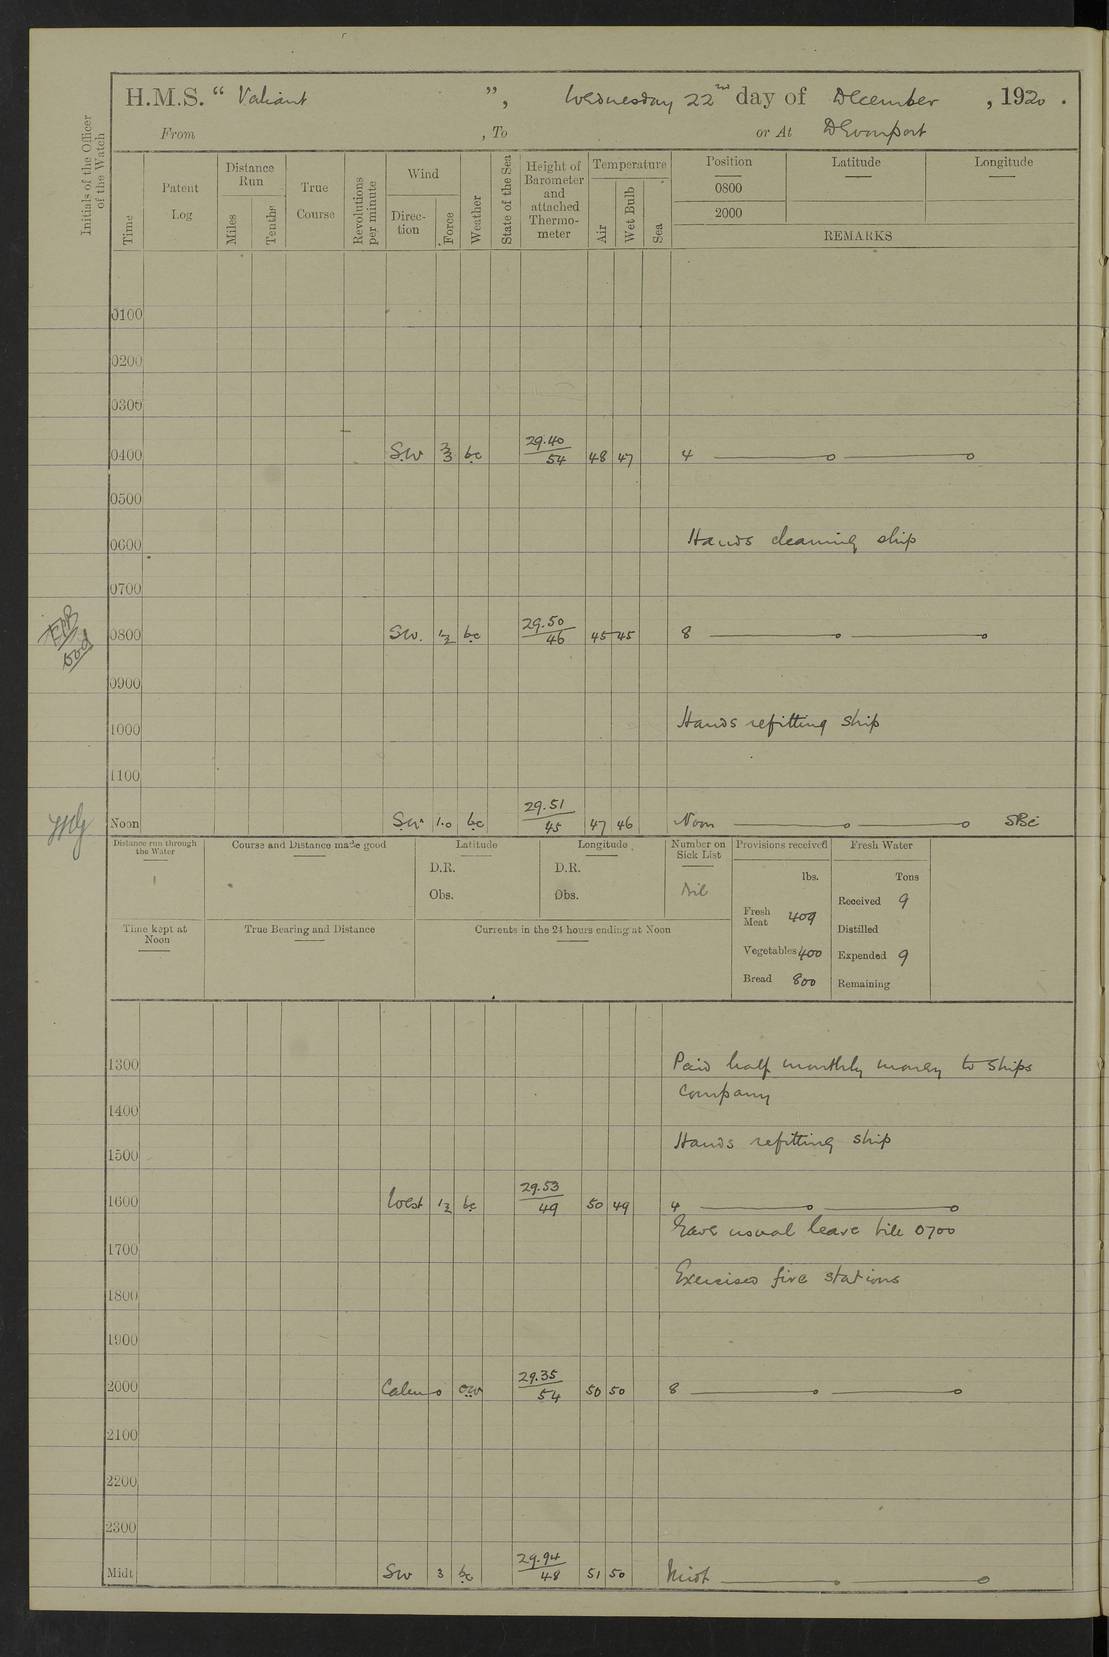 H.M.S. "Valiant", Wednesday 22nd day of December, 1920.
From , To or At Devonport
Initials of the Officer of the Watch
Time
Patent Log
Distance Run
Miles
Tenths
True Course
Revolutions per minute
Wind
Direc-tion
Force
Weather
State of the Sea
Height of Barometer and attached Thermo-meter
Temperature
Air
Wet Bulb
Sea
Position Latitude Longitude
0800
2000
REMARKS
0100
0200
0300
0400 SW 2/3 bc 29.40/54 48 47 4
0500
0600 Hands cleaning ship
0700
0800 SW. 1/2 bc 29.50/46 45 45 8
0900
1000 Hands refitting ship
1100
Noon SW 1.0 bc 29.51/45 47 46 Noon
Distance run through the Water
Course and Distance made good
Latitude
D.R.
Obs.
Longitude
D.R.
Obs.
Number on Sick List
Nil
Provisions received
lbs.
Fresh Meat 409
Vegetables 400
Bread 800
Fresh Water
Tons
Received 9
Distilled
Expended 9
Remaining
Time kept at Noon
True Bearing and Distance
Currents in the 24 hours ending at Noon
1300 Paid half monthly money to ships
company
1400
Hands refitting ship
1500
1600 West 1/2 bc 29.53/49 50 49 4
Gave usual leave till 0700
1700
Exercised fire stations
1800
1900
2000 Calm 0 ow 29.35/54 50 50 8
2100
2200
2300
Midt SW 3 bc 29.94/48 51 50 Midt